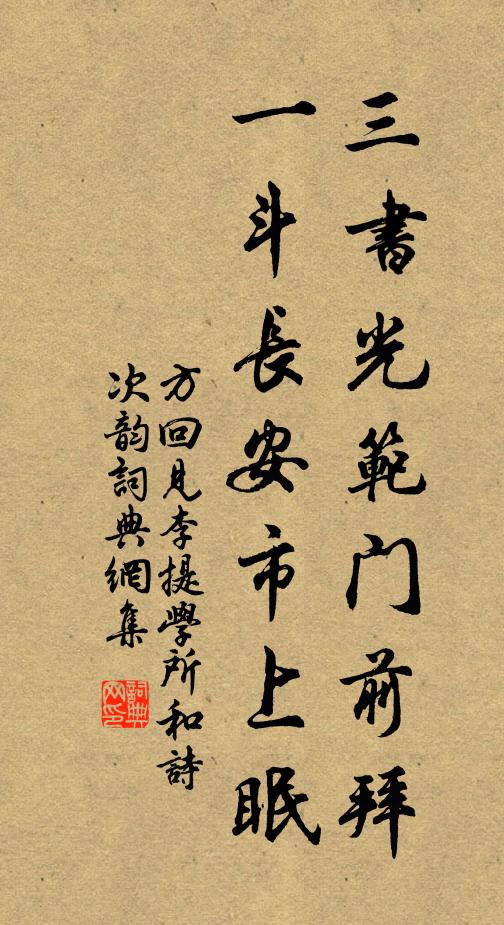 三書光範门前拜
一斗長安市上眠
方回見李提學所和詩
次韵詞典網集
詞典网印